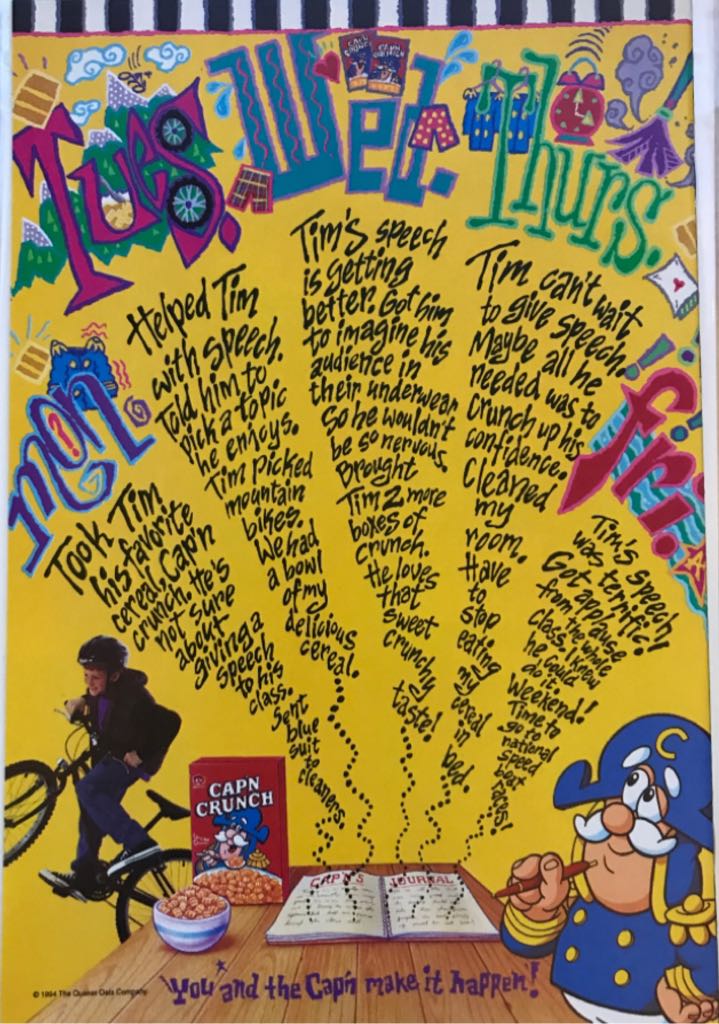 Mon.
Took Tim
his favorite
cereal, Cap'n
Crunch. He's
not sure
about
giving a
speech
to his
class.
Sent
blue
suit
to
cleaners.
Tues.
Helped Tim
with speech.
Told him to
pick a topic
he enjoys.
Tim picked
mountain
bikes.
We had
a bowl
of my
delicious
cereal.
Wed.
Tim's speech
is getting
better. Got him
to imagine his
audience in
their underwear
So he wouldn't
be so nervous.
Brought
Tim 2 more
boxes of
Crunch.
He loves
that
sweet
crunchy
taste!
Thurs.
Tim can't wait
to give speech.
Maybe all he
needed was to
Crunch up his
confidence.
Cleaned
my
room.
Have
to
stop
eating
my
cereal
in
bed.
Fri.
Tim's speech
was terrific!
Got applause
from the whole
class. I knew
he could
do it.
Weekend!
Time to
go to
national
speed
boat
races!
CAP'N CRUNCH
CAP'N CRUNCH
CAPN
CRUNCH
CAP'N'S JOURNAL
C
You and the Cap'n make it happen!
© 1994 The Quaker Oats Company